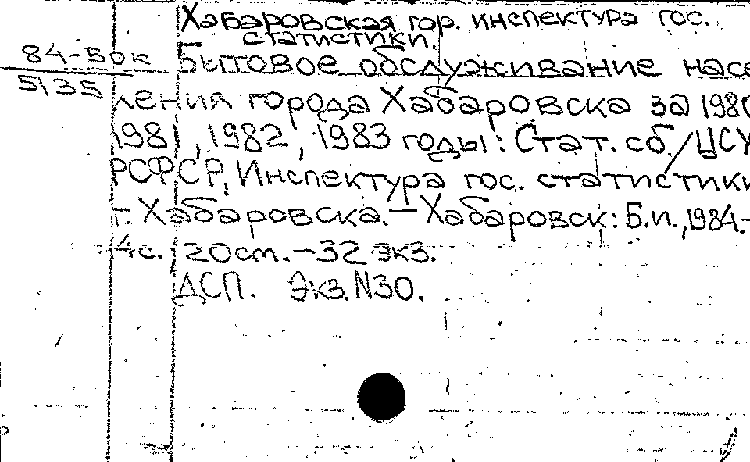 Хабаровская гор. инспектура гос.
статистики.
84-Вок
5135
Бытовое обслуживание насе
ления города Хабаровска за 1980
1981, 1982, 1983 годы: Стат. сб/ЦСУ
РСФСР, Инспектура гос. статистики
г. Хабаровска.—Хабаровск: Б.и., 1984.-
4с.; 20см.-32 экз.
ДСП. Экз. N30.